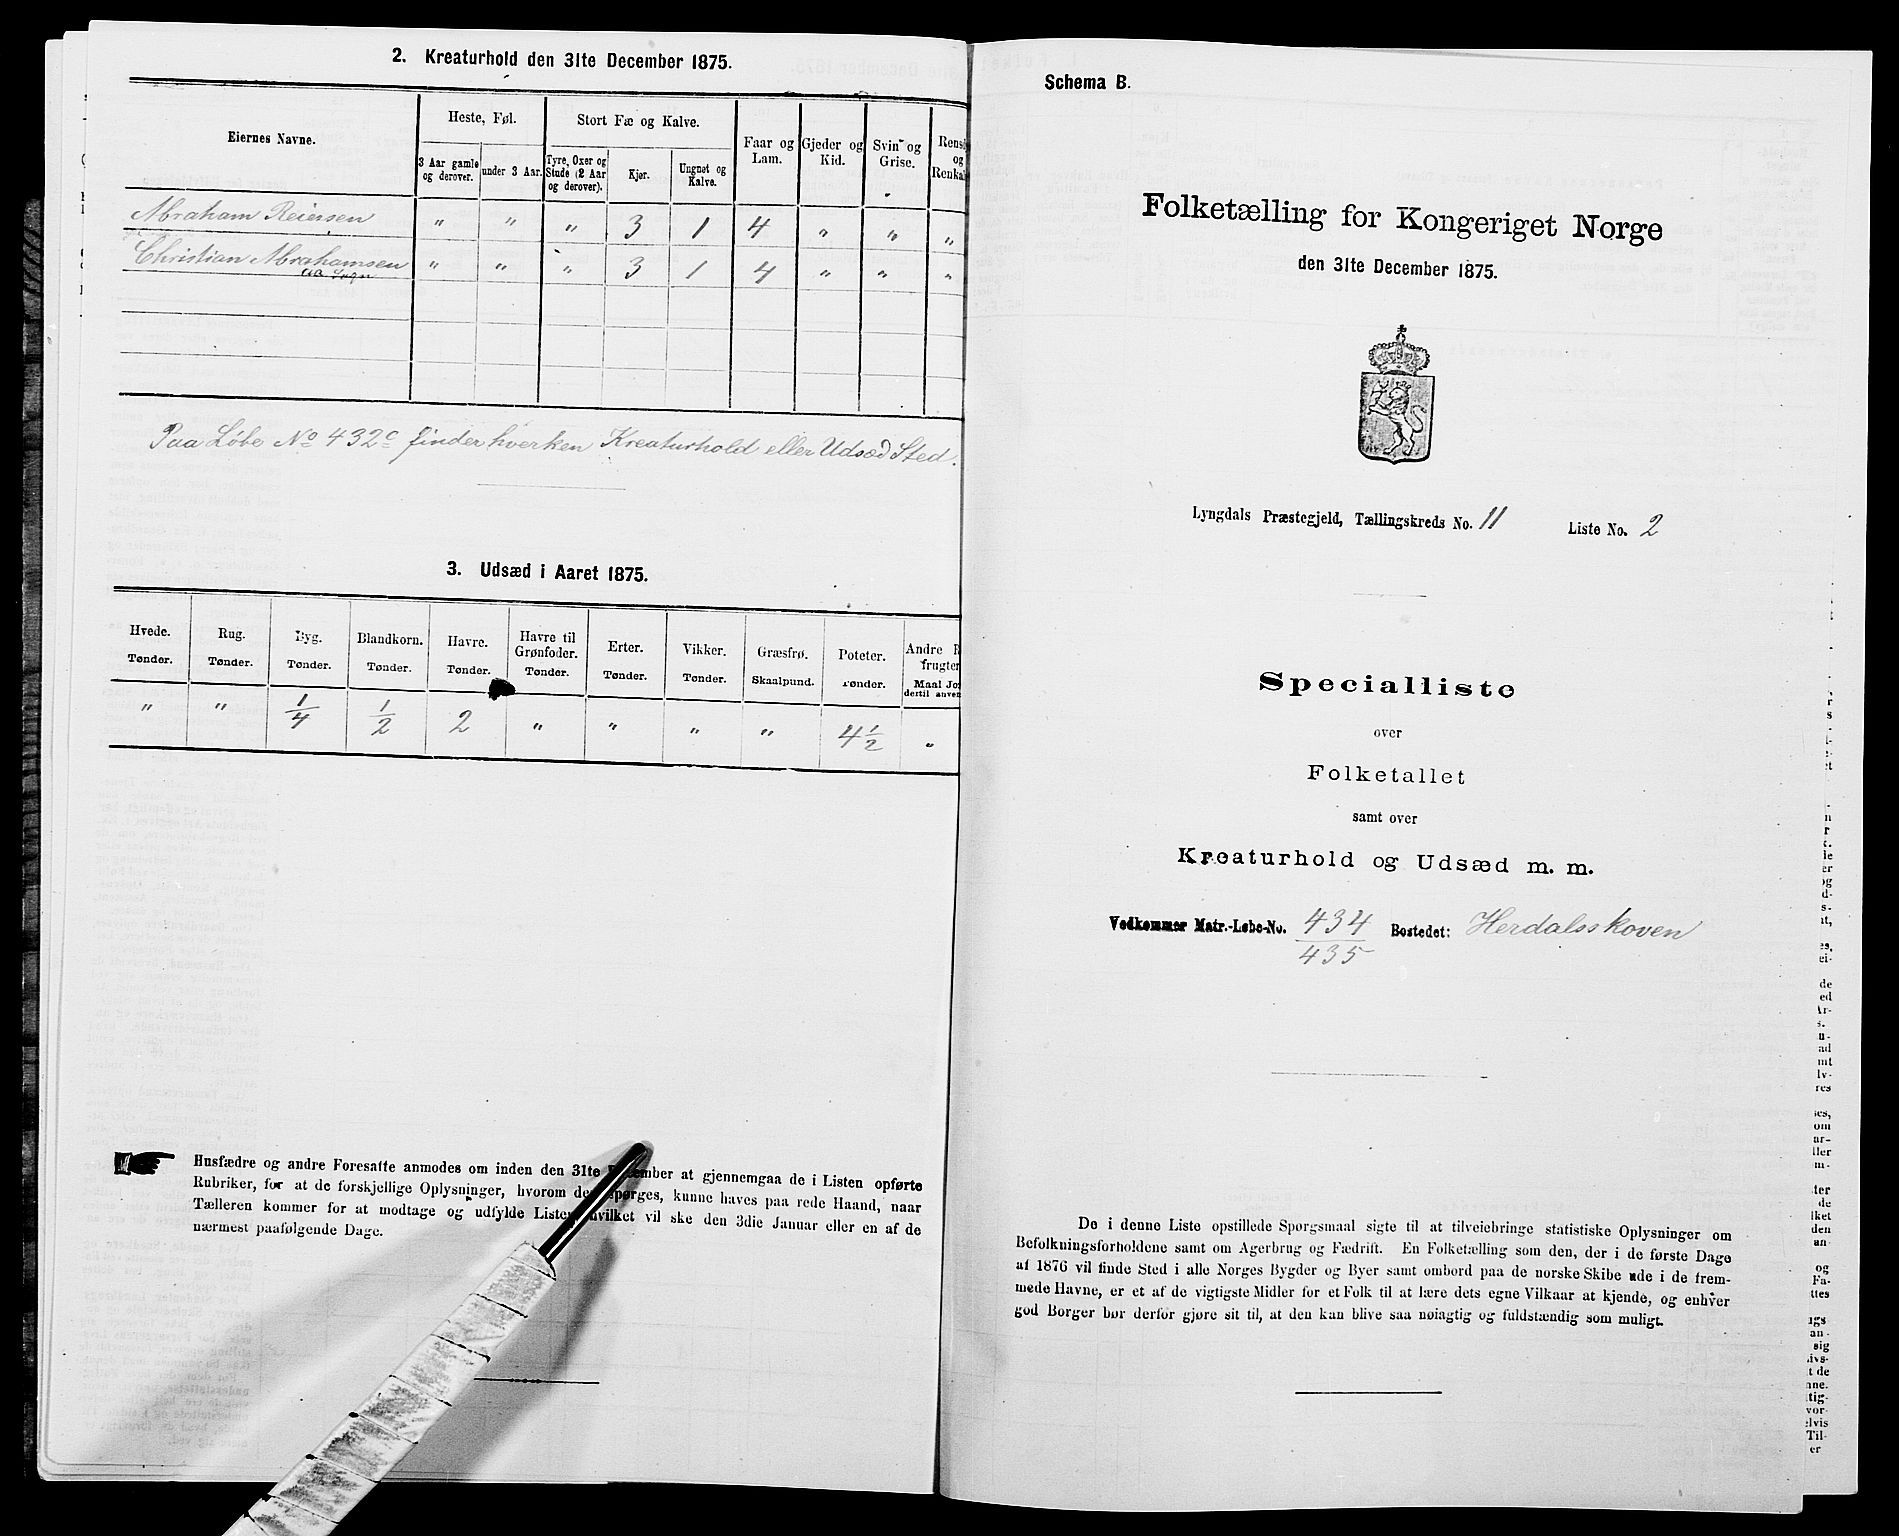 2. Kreaturhold den 31te December 1875.
Eiernes Navne.
Heste, Føl.
Stort Fæ og Kalve.
Faar og Lam.
Gjeder og Kid.
Svin og Grise.
og
3 Aar gamle og derover.
under 3 Aar.
Tyre, Oxer og Stude (2 Aar og derover).
Kjør.
Ungnøt og Kalve.
Abraham Reiersen " " " 3 1 4 " " "
Christian Abrahamsen " " " 3 1 4 " " "
Paa Löbe No 432c finder hverken Kreaturhold eller Udsæd Sted.
3. Udsæd i Aaret 1875.
Hvede. Rug. Byg. Blandkorn. Havre. Havre til Grønfoder. Erter. Vikker. Græsfrø. Poteter. Andre
Tønder. Tønder. Tønder. Tønder. Tønder. Tønder. Tønder. Tønder. Skaalpund. Tønder. Maal
" " 1/4 1/2 2 " " " " 4 1/2 "
Husfædre og andre Foresatte anmodes om inden den 31te December at gjennemgaa de i Listen opførte
Rubriker, for at de forskjellige Oplysninger, hvorom der spørges, kunne haves paa rede Haand, naar
Tælleren kommer for at modtage og udfylde Listen, hvilket vil ske den 3die Januar eller en af de
nærmest paafølgende Dage.
Schema B.
Folketælling for Kongeriget Norge
den 31te December 1875.
Lyngdals Præstegjeld, Tællingskreds No. 11 Liste No. 2
Specialliste
over
Folketallet
samt over
Kreaturhold og Udsæd m. m.
Vedkommer Matr.-Løbe-No. 434 Bostedet: Herdalsskoven
435
De i denne Liste opstillede Spørgsmaal sigte til at tilveiebringe statistiske Oplysninger om
Befolkningsforholdene samt om Agerbrug og Fædrift. En Folketælling som den, der i de første Dage
af 1876 vil finde Sted i alle Norges Bygder og Byer samt ombord paa de norske Skibe ude i de frem-
mede Havne, er et af de vigtigste Midler for et Folk til at lære dets egne Vilkaar at kjende, og enhver
god Borger bør derfor gjøre sit til, at den kan blive saa nøiagtig og fuldstændig som muligt.